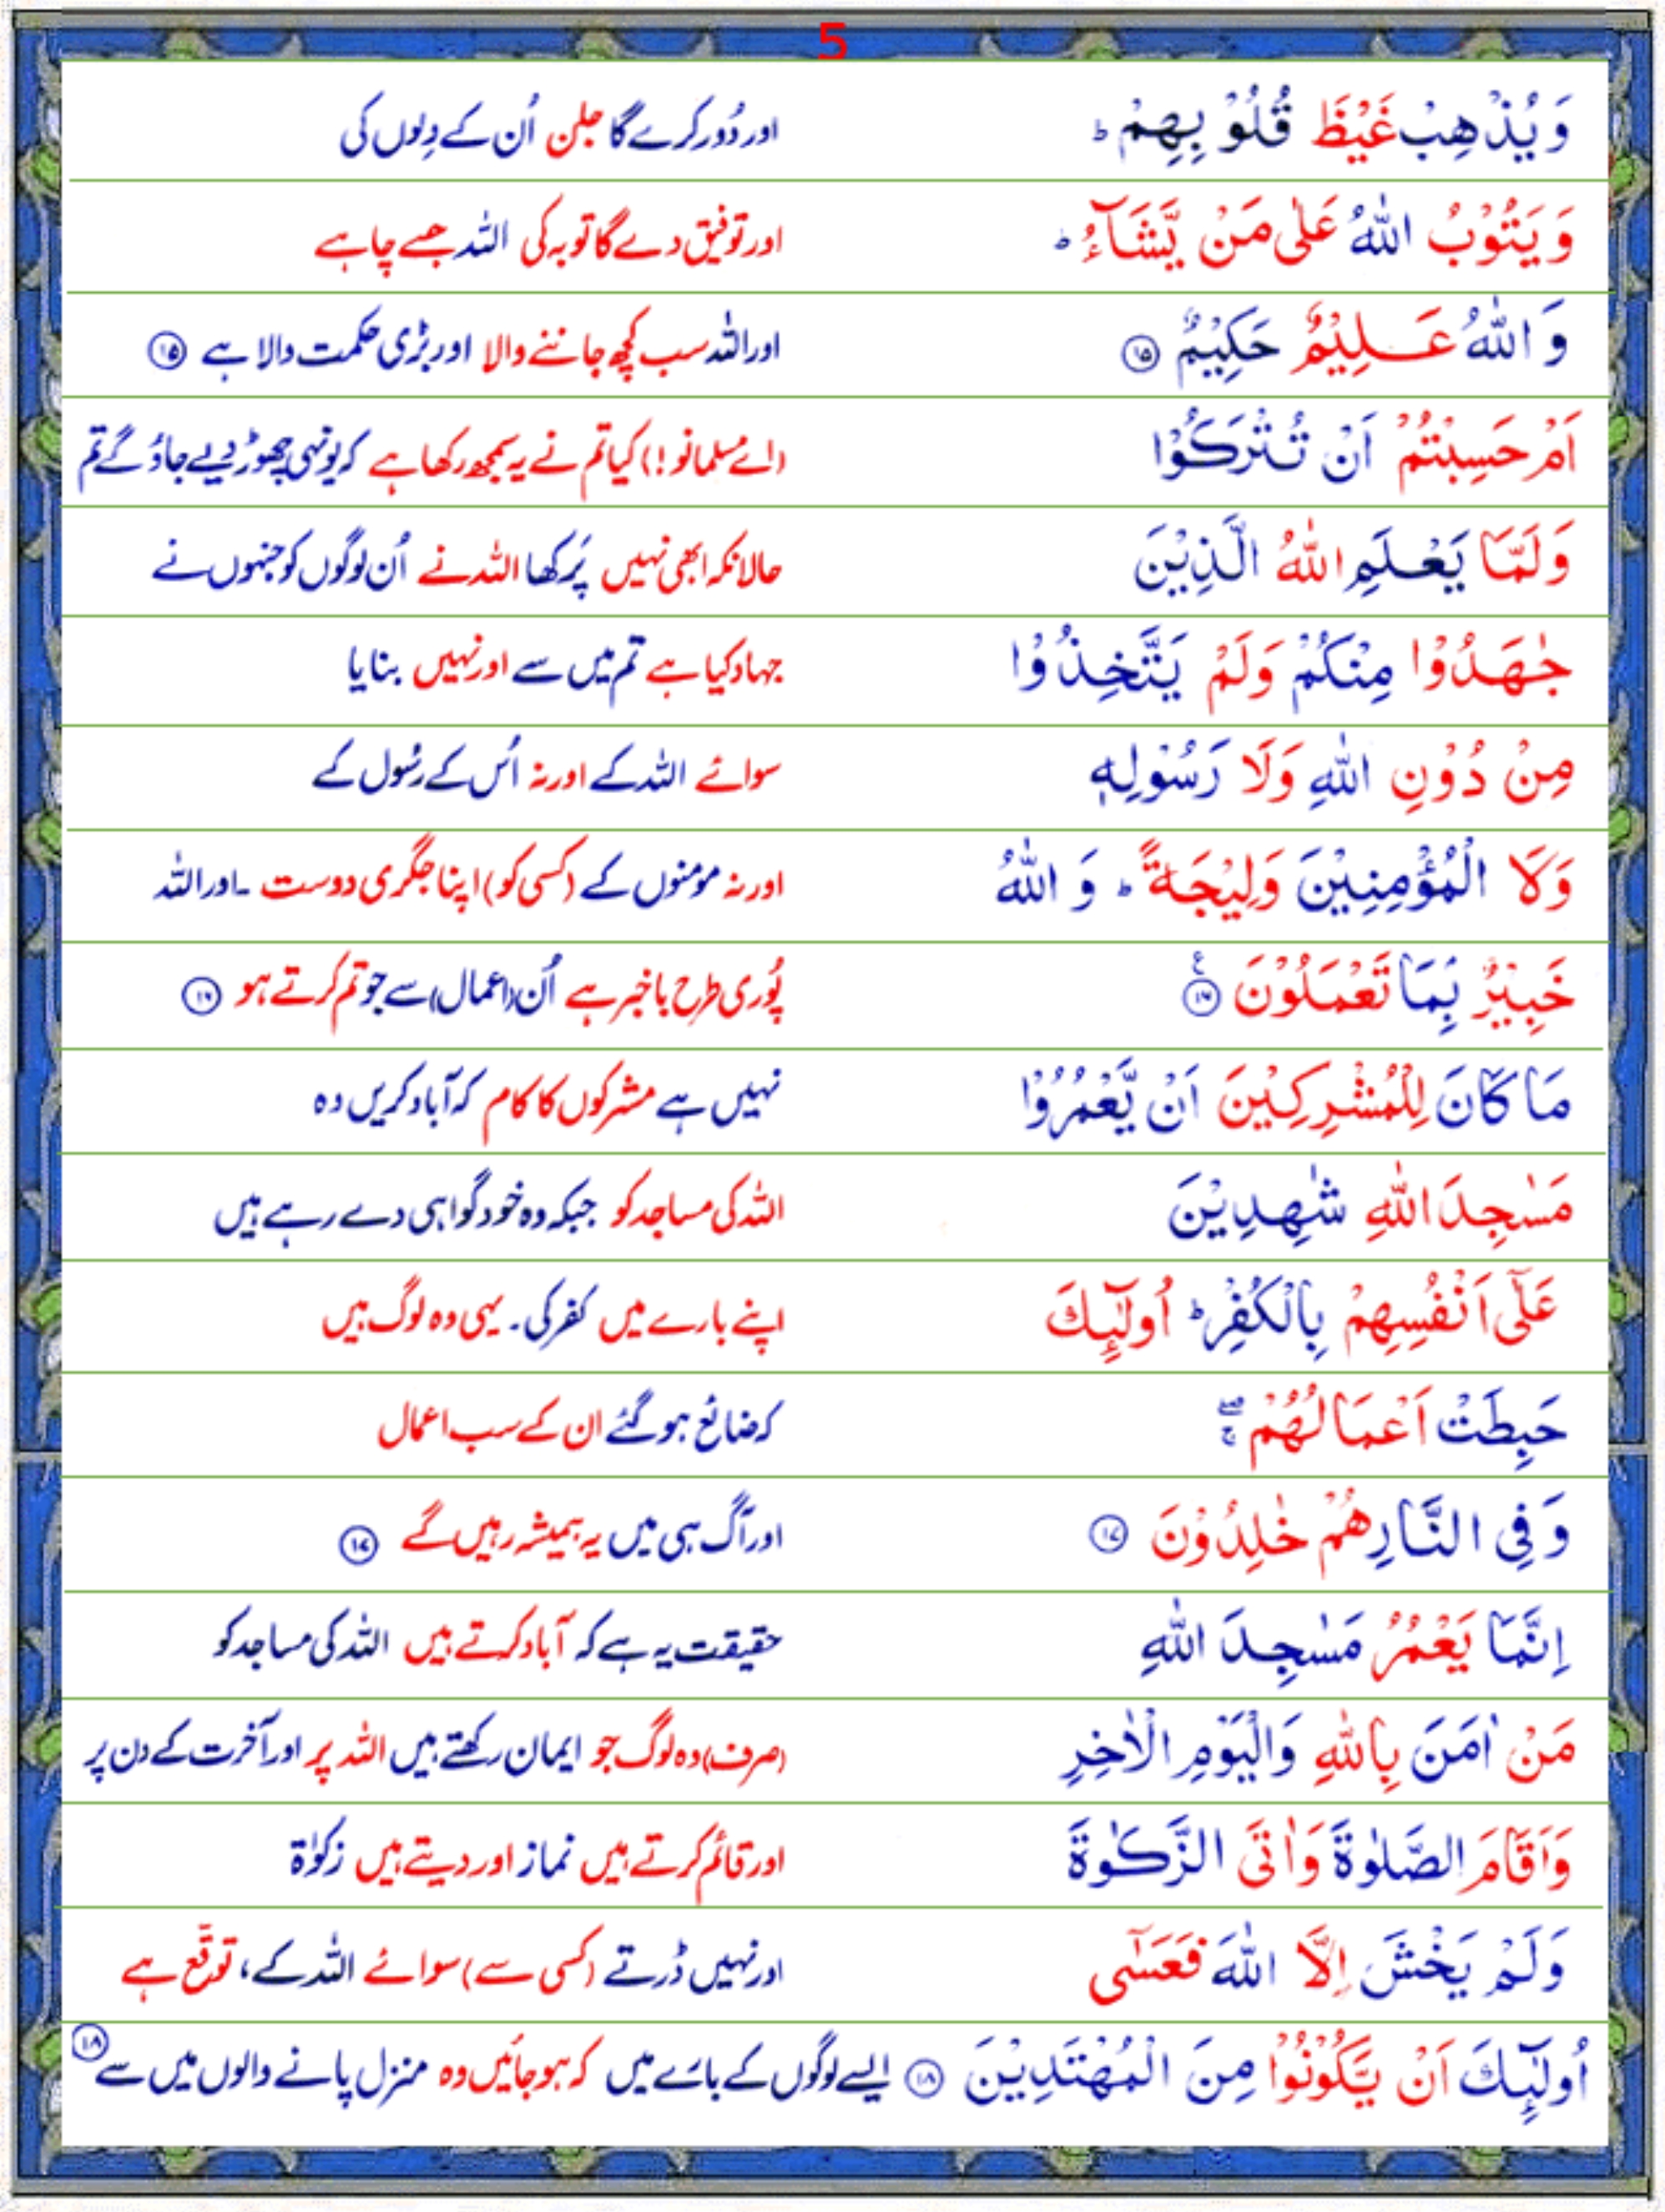 5
وَيُذْهِبْ غَيْظَ قُلُوْبِهِمْ ؕ اور دُور کرے گا جلن اُن کے دِلوں کی
وَيَتُوْبُ اللّٰهُ عَلٰى مَنْ يَّشَآءُ ؕ اور توفیق دے گا توبہ کی اللہ جسے چاہے
وَاللّٰهُ عَلِيْمٌ حَكِيْمٌ ⑮ اور اللہ سب کچھ جاننے والا اور بڑی حکمت والا ہے ⑮
اَمْ حَسِبْتُمْ اَنْ تُتْرَكُوْا (اے مسلمانو!) کیا تم نے یہ سمجھ رکھا ہے کہ یونہی چھوڑ دیے جاؤ گے تم
وَلَمَّا يَعْلَمِ اللّٰهُ الَّذِيْنَ حالانکہ ابھی نہیں پَرکھا اللہ نے اُن لوگوں کو جنہوں نے
جٰهَدُوْا مِنْكُمْ وَلَمْ يَتَّخِذُوْا جہاد کیا ہے تم میں سے اور نہیں بنایا
مِنْ دُوْنِ اللّٰهِ وَلَا رَسُوْلِهٖ سوائے اللہ کے اور نہ اُس کے رسُول کے
وَلَا الْمُؤْمِنِيْنَ وَلِيْجَةً ؕ وَاللّٰهُ اور نہ مومنوں کے (کسی کو) اپنا جگری دوست ۔اور اللہ
خَبِيْرٌۢ بِمَا تَعْمَلُوْنَ ⑯ ۧ پُوری طرح باخبر ہے اُن (اعمال) سے جو تم کرتے ہو ⑯
مَا كَانَ لِلْمُشْرِكِيْنَ اَنْ يَّعْمُرُوْا نہیں ہے مشرکوں کا کام کہ آباد کریں وہ
مَسٰجِدَ اللّٰهِ شٰهِدِيْنَ اللہ کی مساجد کو جبکہ وہ خود گواہی دے رہے ہیں
عَلٰٓى اَنْفُسِهِمْ بِالْكُفْرِ ؕ اُولٰٓئِكَ اپنے بارے میں کفر کی۔ یہی وہ لوگ ہیں
حَبِطَتْ اَعْمَالُهُمْ ۖۚ کہ ضائع ہو گئے ان کے سب اعمال
وَفِى النَّارِ هُمْ خٰلِدُوْنَ ⑰ اور آگ ہی میں یہ ہمیشہ رہیں گے ⑰
اِنَّمَا يَعْمُرُ مَسٰجِدَ اللّٰهِ حقیقت یہ ہے کہ آباد کرتے ہیں اللہ کی مساجد کو
مَنْ اٰمَنَ بِاللّٰهِ وَالْيَوْمِ الْاٰخِرِ (صرف) وہ لوگ جو ایمان رکھتے ہیں اللہ پر اور آخرت کے دن پر
وَاَقَامَ الصَّلٰوةَ وَاٰتَى الزَّكٰوةَ اور قائم کرتے ہیں نماز اور دیتے ہیں زکوٰۃ
وَلَمْ يَخْشَ اِلَّا اللّٰهَ فَعَسٰٓى اور نہیں ڈرتے (کسی سے) سوائے اللہ کے، توقّع ہے
اُولٰٓئِكَ اَنْ يَّكُوْنُوْا مِنَ الْمُهْتَدِيْنَ ⑱ ایسے لوگوں کے بارے میں کہ ہو جائیں وہ منزل پانے والوں میں سے ⑱